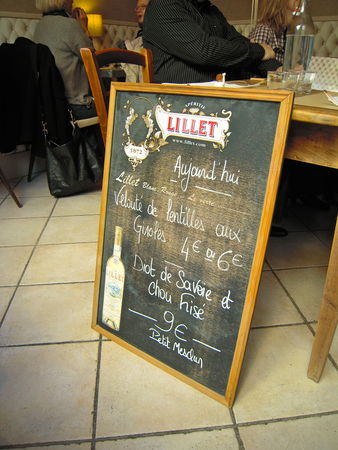 APERITIF
LILLET
www.lillet.com
1872
Aujourd'hui
Lillet Blanc, Rosé Le verre
Velouté de lentilles aux
Girolles 4€ ou 6€
Diot de Savoie et
chou frisé
9€
Petit Mesclun
LILLET